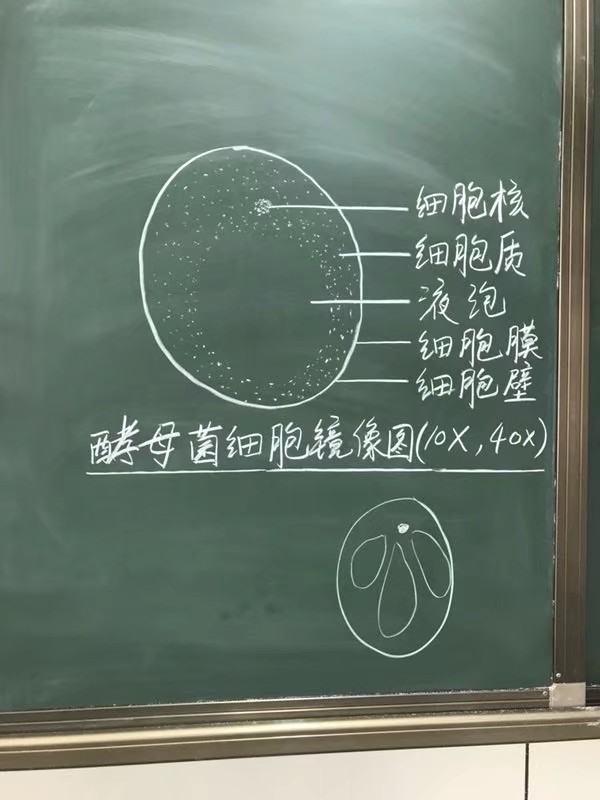 细胞核
细胞质
液泡
细胞膜
细胞壁
酵母菌细胞镜像图(10X,40X)